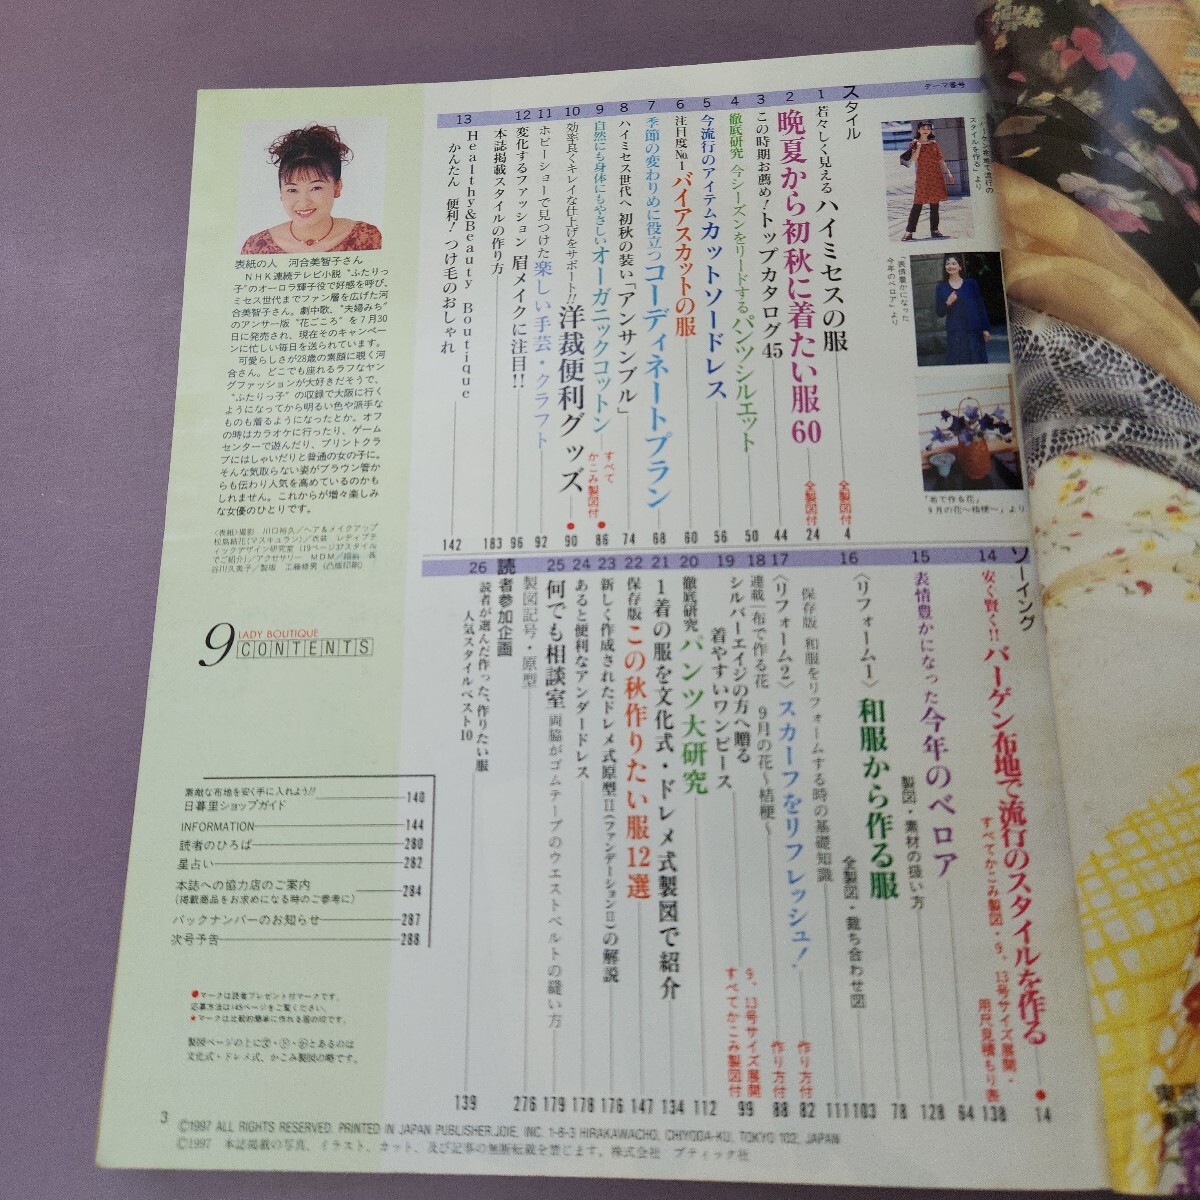 テーマ番号
「バーゲン布地で流行の
スタイルを作る」より
「表情豊かになった
今年のベロア」より
「布で作る花」
9月の花〜桔梗〜」より
スタイル
1 若々しく見えるハイミセスの服 全製図付 4
2 晩夏から初秋に着たい服60 全製図付 24
3 この時期お薦め!トップカタログ45 44
4 徹底研究 今シーズンをリードするパンツシルエット 50
5 今流行のアイテムカットソードレス 56
6 注目度No.1 バイアスカットの服 60
7 季節の変わりめに役立つコーディネートプラン 68
8 ハイミセス世代へ 初秋の装い「アンサンブル」 74
9 自然にも身体にもやさしいオーガニックコットン すべてかこみ製図付 ●86
10 効率良くキレイな仕上げをサポート!! 洋裁便利グッズ ●90
11 ホビーショーで見つけた楽しい手芸・クラフト 92
12 変化するファッション 眉メイクに注目!! 96
本誌掲載スタイルの作り方 183
13 Healthy&Beauty Boutique
かんたん 便利! つけ毛のおしゃれ 142
ソーイング
14 安く賢く!! バーゲン布地で流行のスタイルを作る ●14
すべてかこみ製図・9、13号サイズ展開・
用尺見積もり表 138
15 表情豊かになった今年のベロア 64
製図・素材の扱い方 128
16 〈リフォーム1〉 和服から作る服 78
全製図・裁ち合わせ図 103
保存版 和服をリフォームする時の基礎知識 111
17 〈リフォーム2〉 スカーフをリフレッシュ! 作り方付 82
18 連載「布で作る花 9月の花〜桔梗〜 作り方付 88
19 シルバーエイジの方へ贈る
着やすいワンピース 9、13号サイズ展開
すべてかこみ製図付 99
20 徹底研究 パンツ大研究 112
21 1着の服を文化式・ドレメ式製図で紹介 134
22 保存版 この秋作りたい服12選 147
23 新しく作成されたドレメ式原型II(ファンデーションII)の解説 176
24 あると便利なアンダードレス 178
25 何でも相談室 両脇がゴムテープのウエストベルトの縫い方 179
製図記号・原型 276
読者参加企画
26 読者が選んだ作った、作りたい服
人気スタイルベスト10 139
表紙の人 河合美智子さん
NHK連続テレビ小説“ふたりっ
子”のオーロラ輝子役で好感を呼び、
ミセス世代までファン層を広げた河
合美智子さん。劇中歌、“夫婦みち”
のアンサー版“花ごころ”を7月30
日に発売され、現在そのキャンペー
ンに忙しい毎日を送られています。
可愛らしさが28歳の素顔に覗く河
合さん。どこでも座れるラフなヤン
グファッションが大好きだそうで、
“ふたりっ子”の収録で大阪に行く
ようになってから明るい色や派手な
ものも着るようになったとか。オフ
の時はカラオケに行ったり、ゲーム
センターで遊んだり、プリントクラ
ブにはしゃいだりと普通の女の子に。
そんな気取らない姿がブラウン管か
らも伝わり人気を高めているのかも
しれません。これからが増々楽しみ
な女優のひとりです。
〈表紙〉撮影 川口裕久／ヘア&メイクアップ
松島結花(マスキュラン)／衣装 レディブテ
ィックデザイン研究室 (19ページ37スタイル
でご紹介)／アクセサリー MDM／編輯 長
谷川久美子／製版 工藤修男(凸版印刷)
9 LADY BOUTIQUE
CONTENTS
素敵な布地を安く手に入れよう!!
日暮里ショップガイド 140
INFORMATION 144
読者のひろば 280
星占い 282
本誌への協力店のご案内 284
(掲載商品をお求めになる時のご参考に)
バックナンバーのお知らせ 287
次号予告 288
●マークは読者プレゼント付マークです。
応募方法は145ページをご覧ください。
★マークは比較的簡単に作れる服の印です。
文化式・ドレメ式、かこみ製図の略です。
3
©1997 ALL RIGHTS RESERVED. PRINTED IN JAPAN PUBLISHER.JOIE, INC. 1-6-3 HIRAKAWACHO, CHIYODA-KU, TOKYO 102, JAPAN
©1997 本誌掲載の写真、イラスト、カット、及び記事の無断転載を禁じます。株式会社 ブティック社